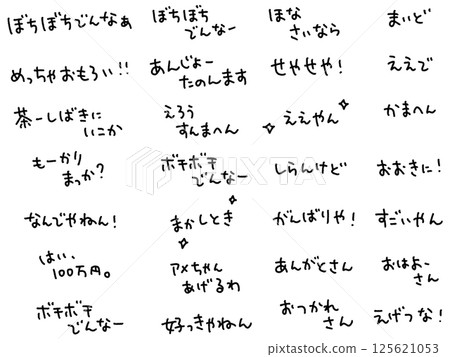 ぼちぼちでんなぁ
ぼちぼち
でんなー
ほな
さいなら
まいど
めっちゃおもろい!!
あんじょー
たのんます
せやせや!
ええで
茶ーしばきに
いこか
えろう
すんまへん
ええやん
かまへん
もーかり
まっか?
ボチボチ
でんなー
しらんけど
おおきに!
なんでやねん!
まかしとき
がんばりや!
すごいやん
はい、
100万円。
アメちゃん
あげるわ
あんがとさん
おはよー
さん
ボチボチ
でんなー
好っきゃねん
おつかれ
さん
えげつな!
PIXTA
pixta.jp - 125621053